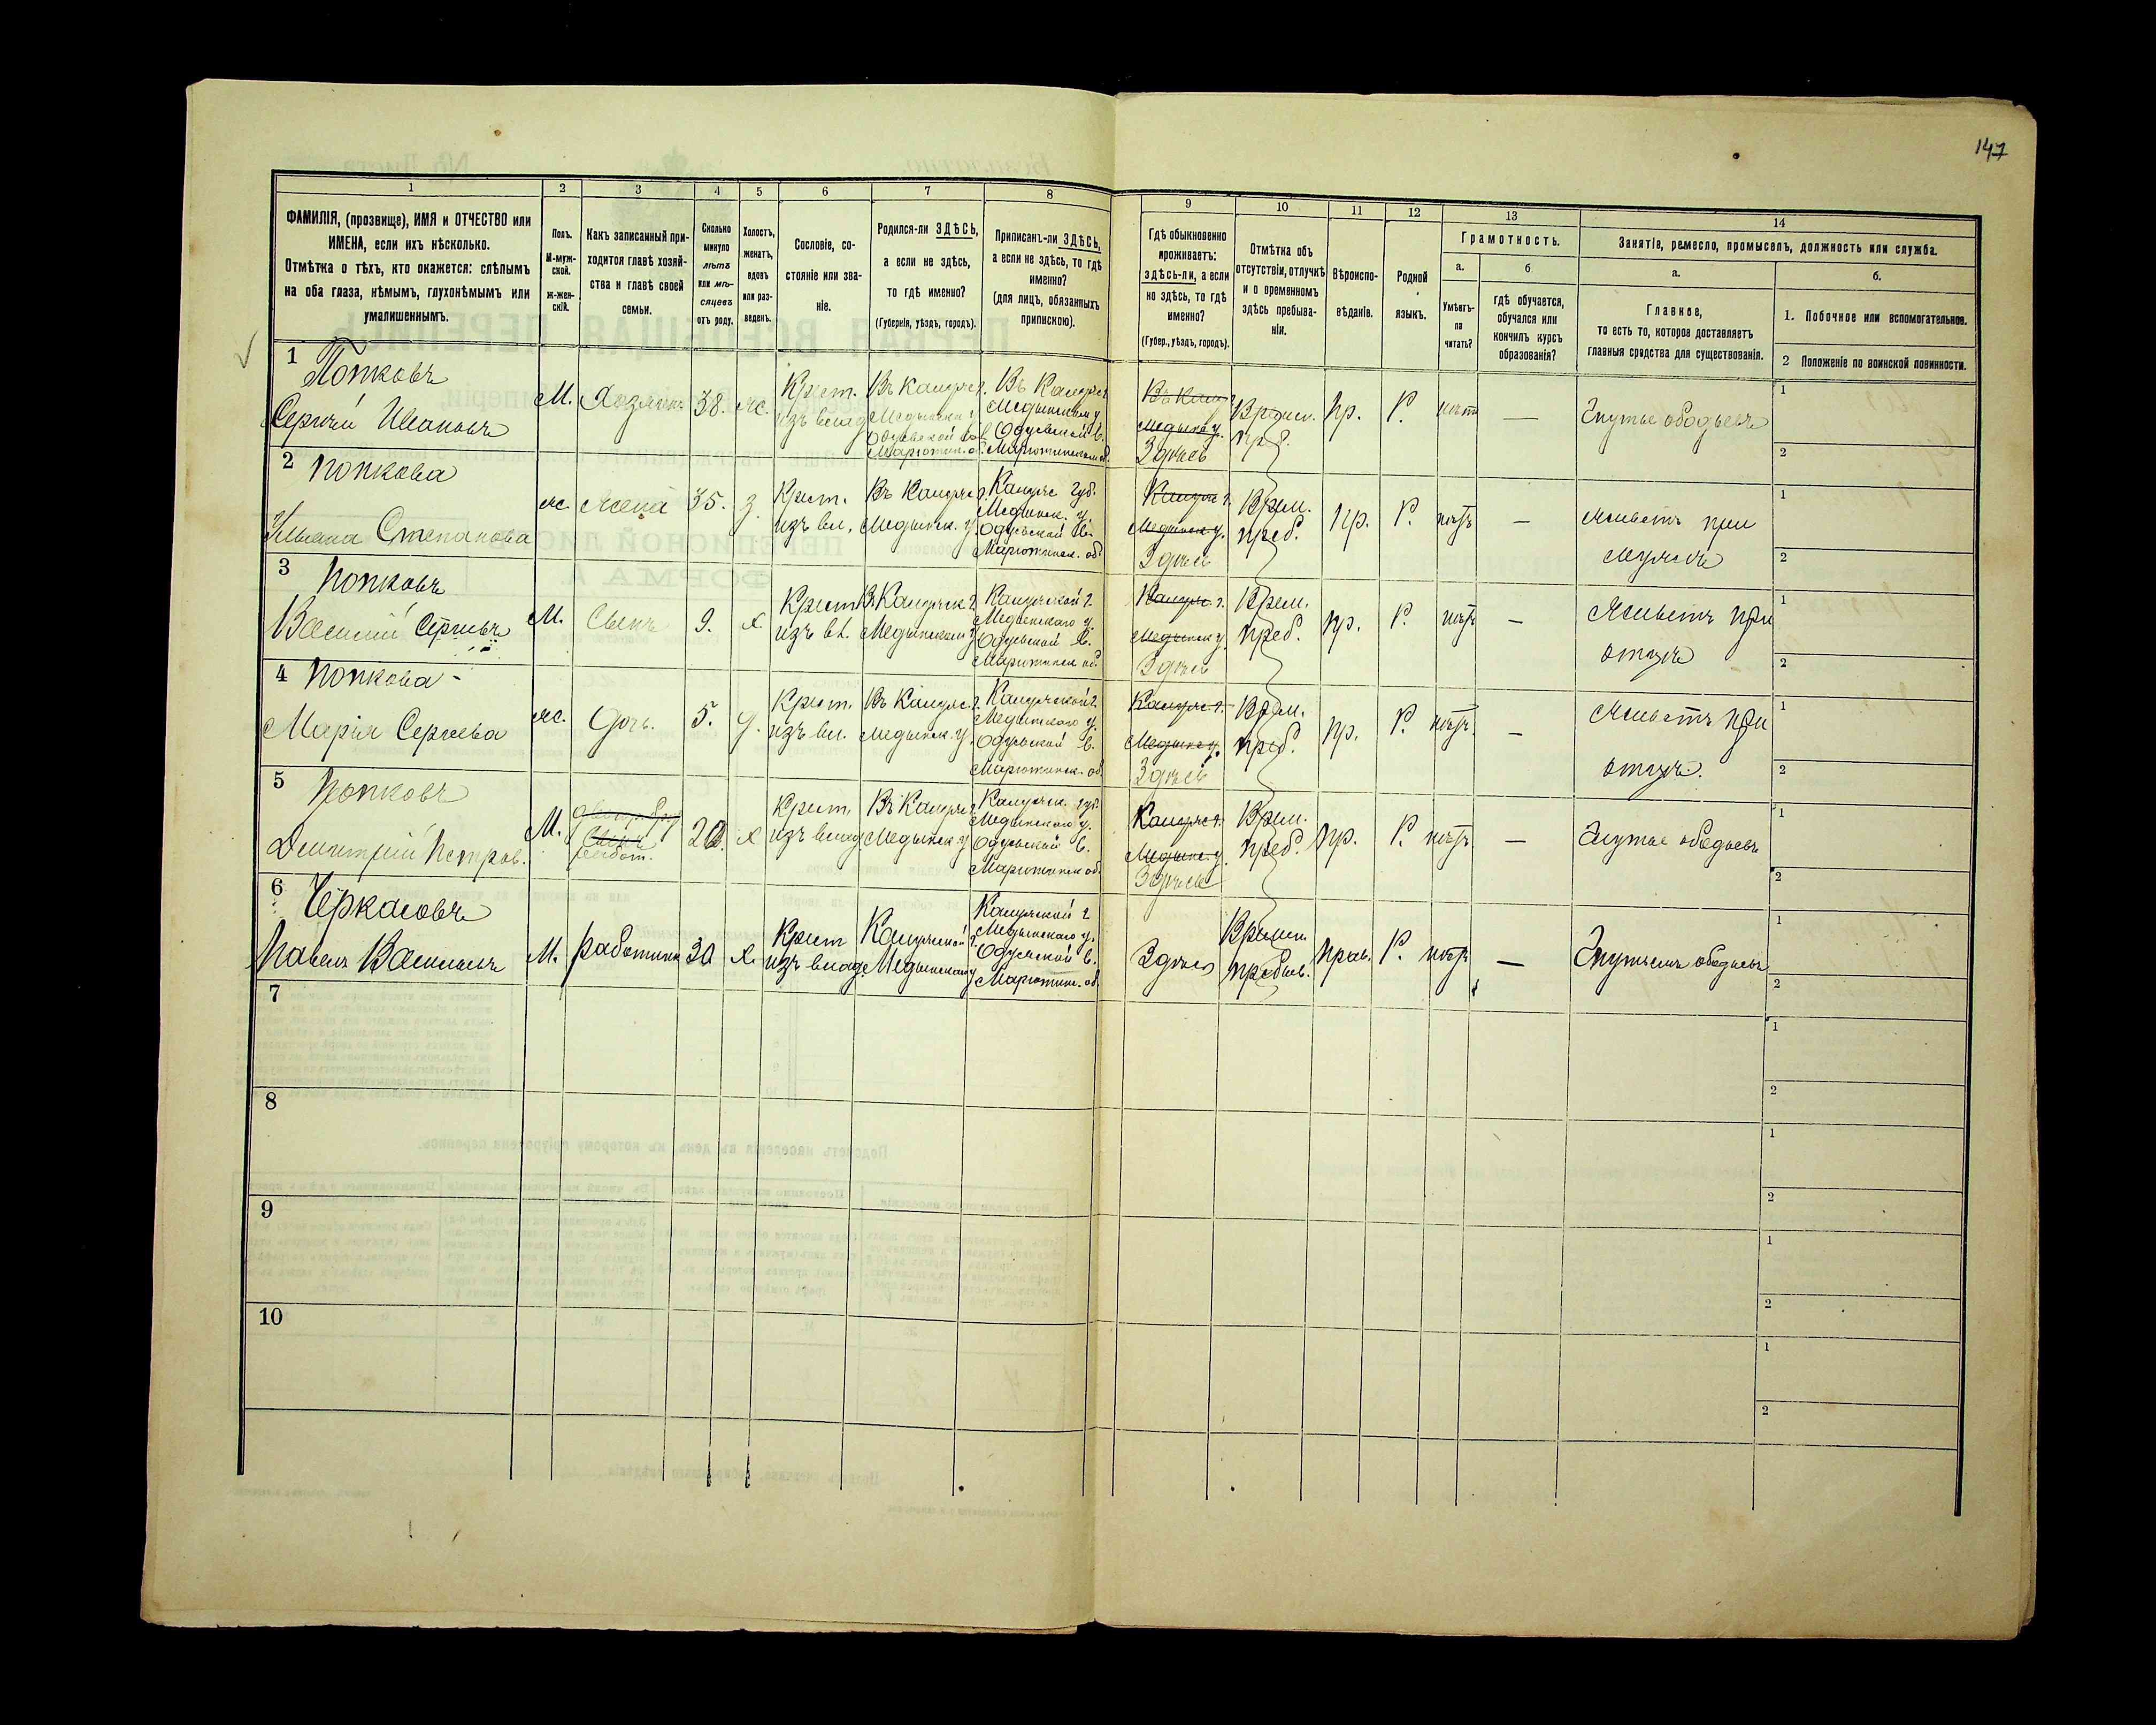 147
1
2
3
4
5
6
7
8
9
10
11
12
13
14
ФАМИЛІЯ, (прозвище), ИМЯ и ОТЧЕСТВО или
ИМЕНА, если ихъ нѣсколько.
Отмѣтка о тѣхъ, кто окажется: слѣпымъ
на оба глаза, нѣмымъ, глухонѣмымъ или
умалишеннымъ.
Полъ.
М-муж-
ской.
ж-жен-
скій.
Какъ записанный при-
ходится главѣ хозяй-
ства и главѣ своей
семьи.
Сколько
минуло
лѣтъ
или мѣ-
сяцевъ
отъ роду.
Холостъ,
женатъ,
вдовъ
или раз-
веденъ.
Сословіе, со-
стояніе или зва-
ніе.
Родился-ли ЗДѢСЬ,
а если не здѣсь,
то гдѣ именно?
(Губернія, уѣздъ, городъ).
Приписанъ-ли ЗДѢСЬ,
а если не здѣсь, то гдѣ
именно?
(для лицъ, обязанныхъ
припискою).
Гдѣ обыкновенно
проживаетъ:
здѣсь-ли, а если
не здѣсь, то гдѣ
именно?
(Губер., уѣздъ, городъ).
Отмѣтка объ
отсутствіи, отлучкѣ
и о временномъ
здѣсь пребыва-
ніи.
Вѣроиспо-
вѣданіе.
Родной
языкъ.
Грамотность.
а.
Умѣетъ-
ли
читать?
б
гдѣ обучается,
обучался или
кончилъ курсъ
образованія?
Занятіе, ремесло, промыселъ, должность или служба.
а.
Главное,
то есть то, которое доставляетъ
главныя средства для существованія.
б.
1. Побочное или вспомогательное.
2 Положеніе по воинской повинности.
1
Попковъ
Сергѣй Ивановъ
М.
Хозяинъ
38.
ж.
Крест.
изъ влад
Въ Калужс. г.
Медынск. у
Въ Калужс.
Медынскаго у
Медынс у.
Здѣсь
Врем.
преб.
Пр.
Р.
нѣтъ
—
Гнутье ободьевъ
1
2
2
Попкова
Ульяна Степанова
ж.
Жена
35.
з.
Крест.
изъ вл.
Въ Калужс г.
Медынск. у.
Калужс губ.
Медынск. у.
Калужс г.
Медынск у.
Здѣсь
Врем.
преб.
Пр.
Р.
нѣтъ
—
Живетъ при
мужѣ
1
2
3
Попковъ
Василій Сергѣевъ
М.
Сынъ
9.
х.
Крест
изъ вл.
В. Калужск г.
Медынскаго у
Калужской г.
Медынскаго у.
Калужс. г.
Медынск у.
Здѣсь
Врем.
преб.
Пр.
Р.
нѣтъ
—
Живетъ при
отцѣ
1
2
4
Попкова
Марія Сергѣева
ж.
Дочь.
5.
Крест.
изъ вл.
Въ Калужс. г.
Медынск. у
Калужской г.
Медынскаго у.
Калужс г.
Медынс у.
Здѣсь
Врем.
преб.
Пр.
Р.
нѣтъ.
—
Живетъ при
отцѣ.
1
2
5
Попковъ
Дмитрій Петров.
М.
работ.
х
Крест.
изъ влад
Въ Калужс г.
Медынск. у
Калужск. губ.
Медынскаго у.
Калужс г.
Медынс. у.
Здѣсь
Врем.
преб.
Пр.
Р.
нѣтъ
—
Гнутье ободьевъ
1
2
6
Черкасовъ
Павелъ Васильевъ
М.
работникъ
30
х.
Крест
изъ влад.
Калужской г.
Медынскаго у
Калужской г
Медынскаго у.
Здѣсь
Времен.
пребыв.
Прав.
Р.
нѣтъ
—
Гнутьемъ ободьевъ
1
2
7
1
2
8
1
2
9
1
2
10
1
2